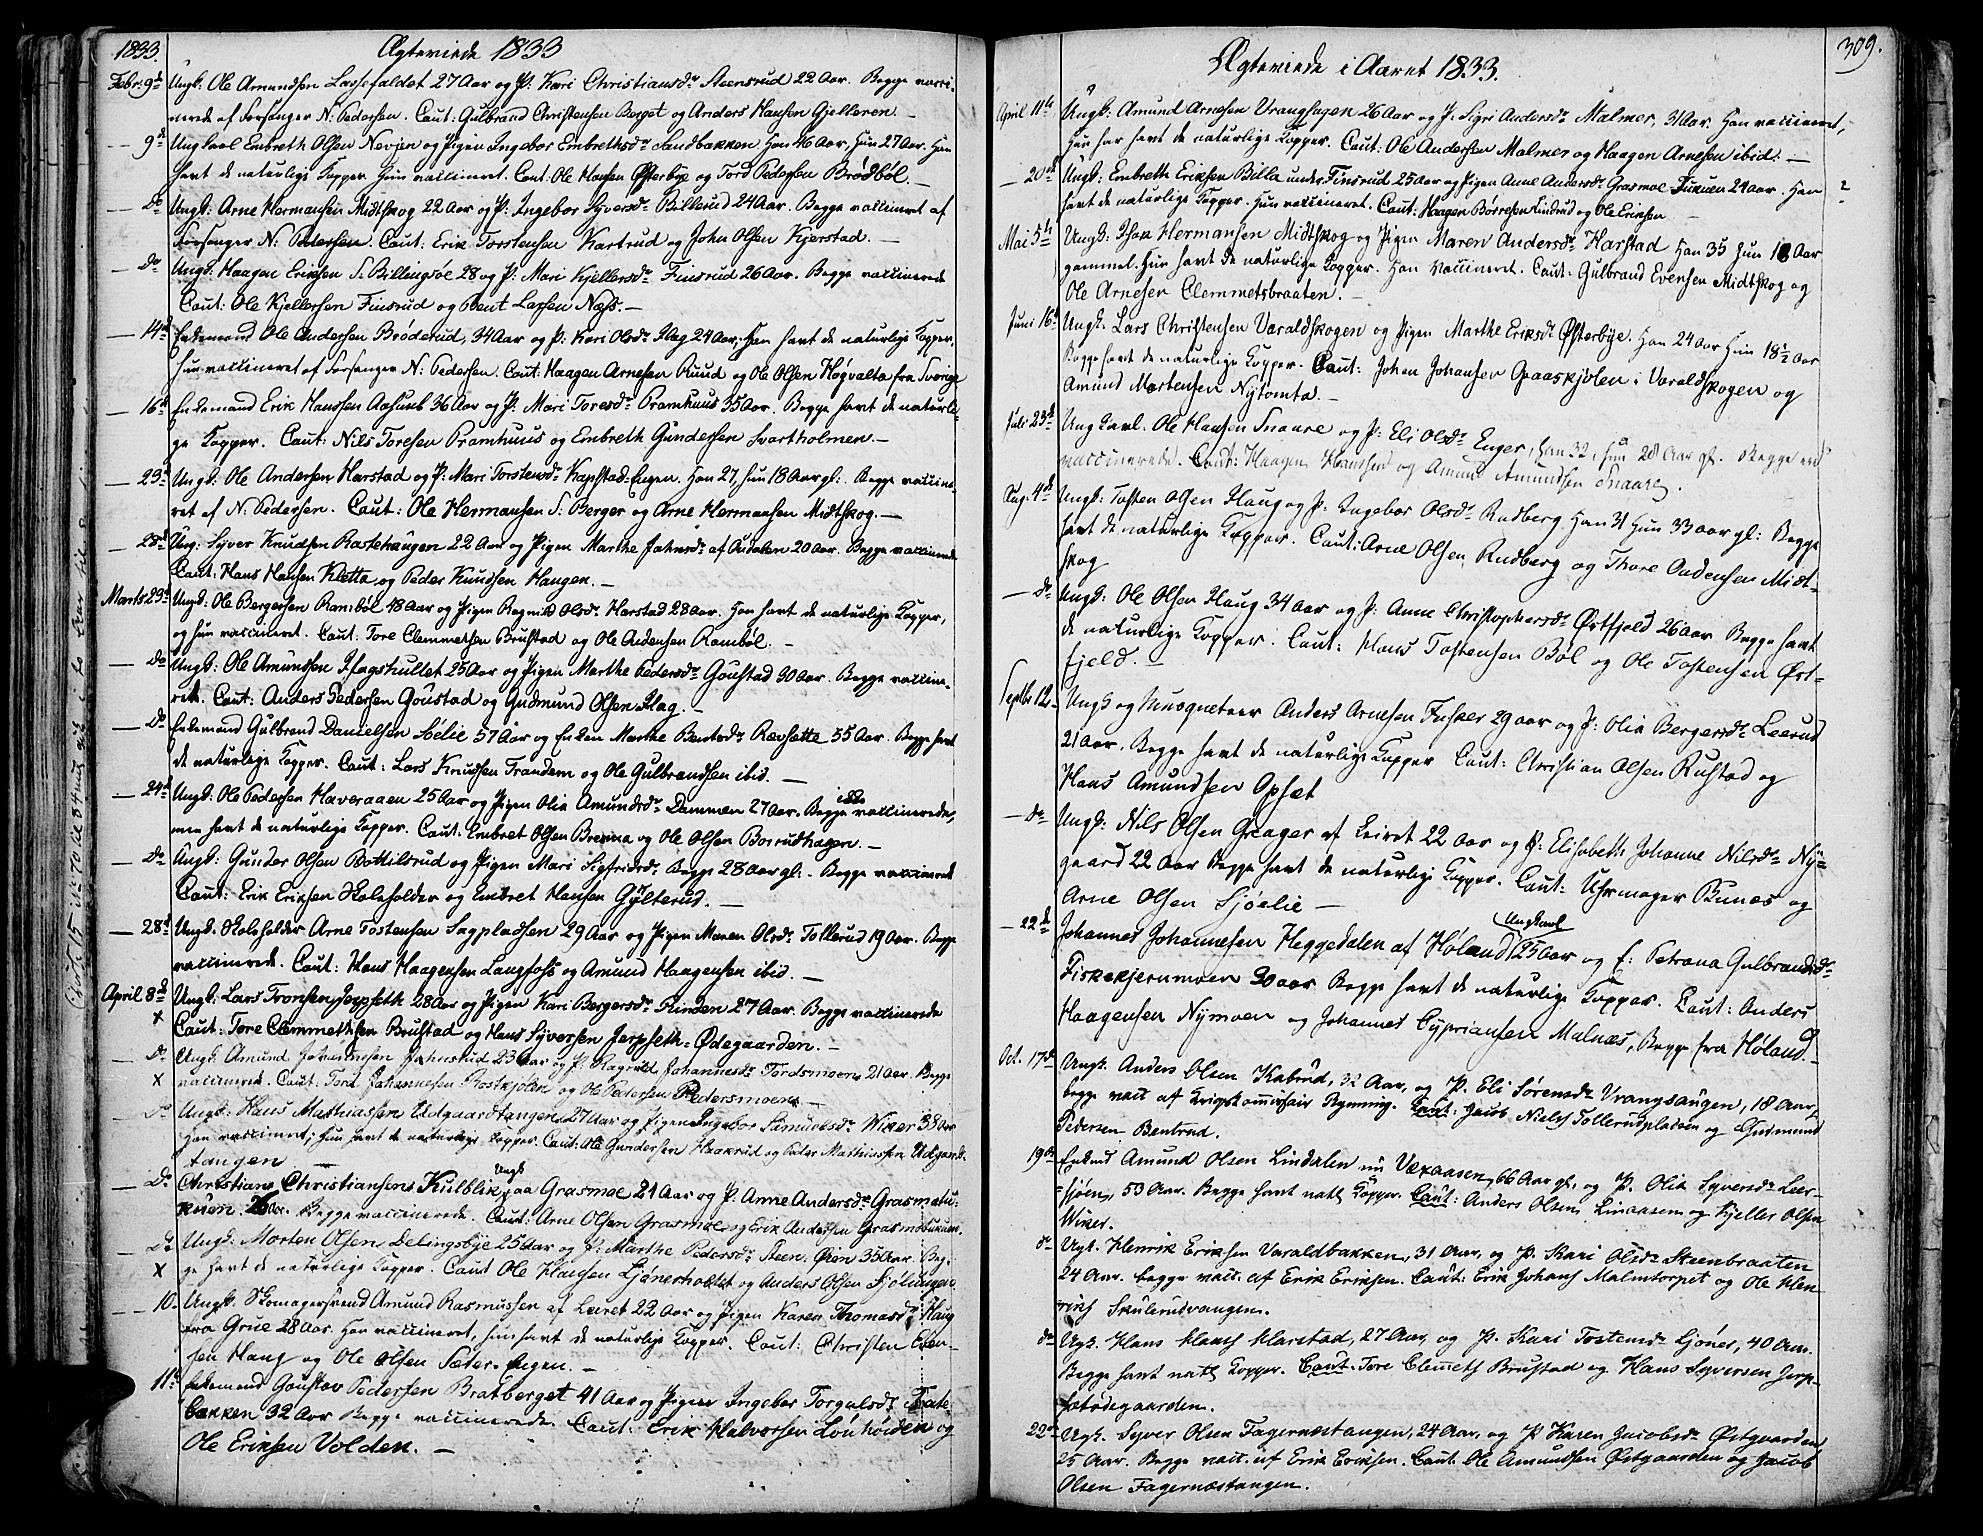 1833. Ægteviede 1833
Febr: 9d Ungk: Ole Amundsen Lassefaldet 27 Aar og P: Kari Christiansd: Steensrud 22 Aar. Begge vacci-
nerede af Forsanger N: Pedersen. Caut: Gulbrand Christensen Berget og Anders Hansen Gjelleren.
— 9d Ungkarl Embreth Olsen Nævjen og Pigen Ingebor Embrethsd: Sandbakken Han 46 Aar, hun 27 Aar. Han
havt de naturlige Kopper hun vaccineret. Caut: Ole Hansen Østerbye og Tord Pedersen Brødbøl.
— Do Ungk: Arne Hermansen Midtskog 22 Aar og P: Ingebor Syversd: Billerud 24 Aar. Begge vaccineret af
Forsanger N: Pedersen. Caut: Erik Torstensen Kastrud og John Olsen Kjerstad.
— Do Ungk: Haagen Eriksen S. Billingsøe 28 og P: Mari Kjellersd: Finsrud 26 Aar. Begge vaccinerede
Caut: Ole Kjellersen Finsrud og Bent Larsen Næss.
— 14d Enkemand Ole Andersen Brøderud, 34 Aar og P: Kari Olsd: Flag 24 Aar; Han havt de naturlige Kopper,
hun vaccineret af Forsanger N: Pedersen. Caut: Haagen Arnesen Ruud og Ole Olsen Høgvalta fra Sverige
— 16d Enkemand Erik Hanssen Aasund 36 Aar og P: Mari Toresd: Pramhuus 35 Aar. Begge havt de naturli-
ge Kopper. Caut: Nils Toresen Pramhuus og Embreth Gundersen Svartholmen.
— 23d Ungk: Ole Andersen Harstad og P: Mari Torstensd: Kapstad-Engen. Han 27, hun 18 Aar gl:. Begge vaccine-
ret af N. Pedersen. Caut: Ole Hermansen S. Berger og Arne Hermansen Midtskog.
— 28d Ung: Syver Knudsen Rastehaugen 22 Aar og Pigen Marthe Jahnsd: af Audalen 20 Aar. Begge vaccinerede
Caut: Hans Hansen Kletta og Peder Knudsen Haugen.
Marts 23d Ungk: Ole Bergersen Rambøl 48 Aar og Pigen Ragnild Olsd: Harstad 28 Aar. Han havt de naturlige Kopper,
og hun vaccineret. Caut: Tore Clemmetsen Brustad og Ole Andersen Rambøl.
— Do Ungk: Ole Amundsen Flagshullet 25 Aar og Pigen Marthe Pedersd: Goustad 30 Aar. Begge vaccine-
rede. Caut: Anders Pedersen Goustad og Gudmund Olsen Flag.
— Do Enkemand Gulbrand Danielsen Sølie 57 Aar og Enken Marthe Bentsd: Rævsætte 55 Aar. Begge havt
de naturlige Kopper. Caut: Lars Knudsen Trandem og Ole Gulbrandsen ibid.
— 24d Ungk: Ole Pedersen Haveraaen 25 Aar og Pigen Olia Amundsd: Dammen 27 Aar. Begge ikke vaccinerede,
men havt de naturlige Kopper. Caut: Embret Olsen Brenna og Ole Olsen Borrudhagen.
— Do Ungk: Gunder Olsen Bottilsrud og Pigen Mari Sigfridsd: Begge 28 Aar gl:. Begge vaccinerede
Caut: Erik Eriksen Skoleholder og Embret Hansen Gylterud.
— 28d Ungk. Skoleholder Arne Tostensen Sagpladsen 29 Aar og Pigen Maren Olsd: Tollerud 19 Aar. Begge
vaccinerede. Caut: Hans Haagensen Langfoss og Amund Haagensen ibid.
April 8d Ungk: Lars Tronsen Jerpseth 28 Aar og Pigen Kari Bergersd: Rinden 27 Aar. Begge vaccinerede
x Caut: Tore Clemmetsen Brustad og Hans Syversen Jerpseth-Ødegaarden.
— Do Ungk: Amund Johannesen Jahnsrud 23 Aar og P: Ragnild Johannesd: Tordsmoen 21 Aar. Begge
x vaccinerede. Caut: Tore Johannesen Rostkjølen og Ole Pedersen Pedersmoen
— Do Ungk: Hans Mathiassen Udgaardtangen 27 Aar og Pigen Ingebor Samuelsd: Wiker 38 Aar
Han vaccineret; hun havt de naturlige Kopper. Caut: Ole Gundersen Haakrud og Peder Mathiassen Udgaard-
tangen
— Do Christian Christiansen Kulblik Ungk paa Grasmoe 21 Aar og P: Anne Andersd: Grasmoetu-
kuen. 26 Aar. Begge vaccinerede. Caut: Arne Olsen Grasmoe og Erik Andersen Grasmoetukuen.
— Do Ungk: Morten Olsen Delingsbye 25 Aar og P: Marthe Pedersd: Steen-Øien 35 Aar. Beg-
x ge havt de naturlige Kopper. Caut Ole Hansen Sjønerholtet og Anders Olsen
— 10. Ungk: Skomagersvend Amund Rasmussen af Leiret 22 Aar og Pigen Karen Thomasd: Haug
fra Grue 28 Aar. Han vaccineret, hun havt de naturlige Kopper. Caut: Christen Even-
sen Haug og Ole Olsen Sæter-Engen.
11d Enkemand Goustav Pedersen Bratberget 41 Aar og Pigen Ingebor Torgalsd:
bakken 32 Aar Begge vaccinerede. Caut: Erik Halvorsen Lønhøiden og
Ole Eriksen Volden.
Ægteviede i Aaret 1833. 309.
April 11te Ungk: Amund Arnesen Vranghagen 26 Aar og P. Sigri Andersd: Malmer, 31 Aar. Han vaccineret,
hun har havt de naturlige Kopper. Caut: Ole Andersen Malmer og Haagen Arnesen ibid:
— 20d Ungk: Embreth Eriksen Billa under Finsrud 25 Aar og Pigen Anne Andersd: Grasmoe Tukuen 24 Aar. Han
havt de naturlige Kopper. Hun vaccineret. Caut: Haagen Børresen Lindrud og Ole Eriksen
Mai 5te Ungk. Isak Hermansen Midtskog og Pigen Maren Andersd: Harstad Han 35 Hun 18 Aar
gammel. Hun havt de naturlige Kopper. Han vaccineret. Caut: Gulbrand Evensen Midtskog og
Ole Arnesen Clemmetsbraaten.
Juni 16d Ungk. Lars Christensen Varaldskogen og Pigen Marthe Eriksd: Østerbye. Han 24 Aar Hun 18½ Aar
Begge havt de naturlige Kopper. Caut: Johan Johansen Graaskjølen i Varaldskogen og
Amund Mortensen Nytomta.
Juli 23d Ungkarl. Ole Hansen Snaare og P: Eli Olsd: Enger, Han 32, hun 28 Aar gl. Begge ere
vaccinerede. Caut: Haagen Hansen og Amund Amundsen Snaare.
Aug: 4d Ungk: Tosten Olsen Haug og P. Ingebor Olsd: Rudberg. Han 31 Hun 33 aar gl: Begge
havt de naturlige Kopper. Caut: Arne Olsen Rudberg og Thore Audensen Midt-
skog
— Do Ungk: Ole Olsen Haug 34 Aar og P: Anne Christophersd: Østfjeld 26 Aar Begge havt
de naturlige Kopper. Caut: Hans Tostensen Bøl og Ole Tostensen Øst-
fjeld.
Septbr 12. Ungk og Musqueteer Anders Arnesen Fusker 29 aar og P: Olia Bergersd: Leerud
21 Aar. Begge havt de naturlige Kopper Caut: Christian Olsen Rustad og
Hans Amundsen Opset
— Do Ungk: Nils Olsen Greager af Leiret 22 Aar og P: Elisabeth Johanne Nilsd: Ny-
gaard 22 Aar Begge havt de naturlige Kopper. Caut: Uhrmager Bunæs og
Arne Olsen Sjølie
— 22d Johannes Johannesen Heggedalen af Høland Ungkarl 25 Aar og E: Petrona Gulbrandsd:
Fiskekjernmoen 30 Aar Begge havt de naturlige Kopper. Caut: Anders
Haagensen Nymoen og Johannes Cypriansen Malnæs, Begge fra Høland.
Oct. 17de Ungk. Anders Olsen Kabrud, 32 Aar, og P. Eli Sørensd: Vrangsaugen, 18 Aar,
begge vacc af Krigskommissair Rynning. Caut: Jacob Nielss Tollerudpladsen og Gudmund
Pedersen Bentrud.
19de Enkmd Amund Olsen Lindalen nu Væraasen, 66 Aar gl. og P. Olia Syversd: Leer-
sjøen, 53 Aar. Begge havt natl Kopper. Caut: Anders Olsen Linaasen og Kjeller Olsen
Wiker.
do Ungk. Henrik Eriksen Varaldbakken, 31 Aar, og P. Kari Olsd: Steenbraaten
24 Aar. begge vacc. af Erik Eriksen. Caut: Erik Johans Malmtorpet og Ole Hen-
riks Skulerudvangen.
do Ungk. Hans Hans Harstad, 27 Aar, og P. Kari Tostensd: Sjøner, 40 Aar.
Begge havt natl Kopper. Caut: Tore Clemets Brustad og Hans Syversen Jerp-
setødegaarden.
22de Ungk. Syver Olsen Fagernæstangen, 24 Aar, og P Karen Jacobsd: Østgaarden,
25 Aar. Begge vacc. af Erik Eriksen. Caut: Ole Amundsen Østgaarden og Jacob
Olsen Fagernæstangen.